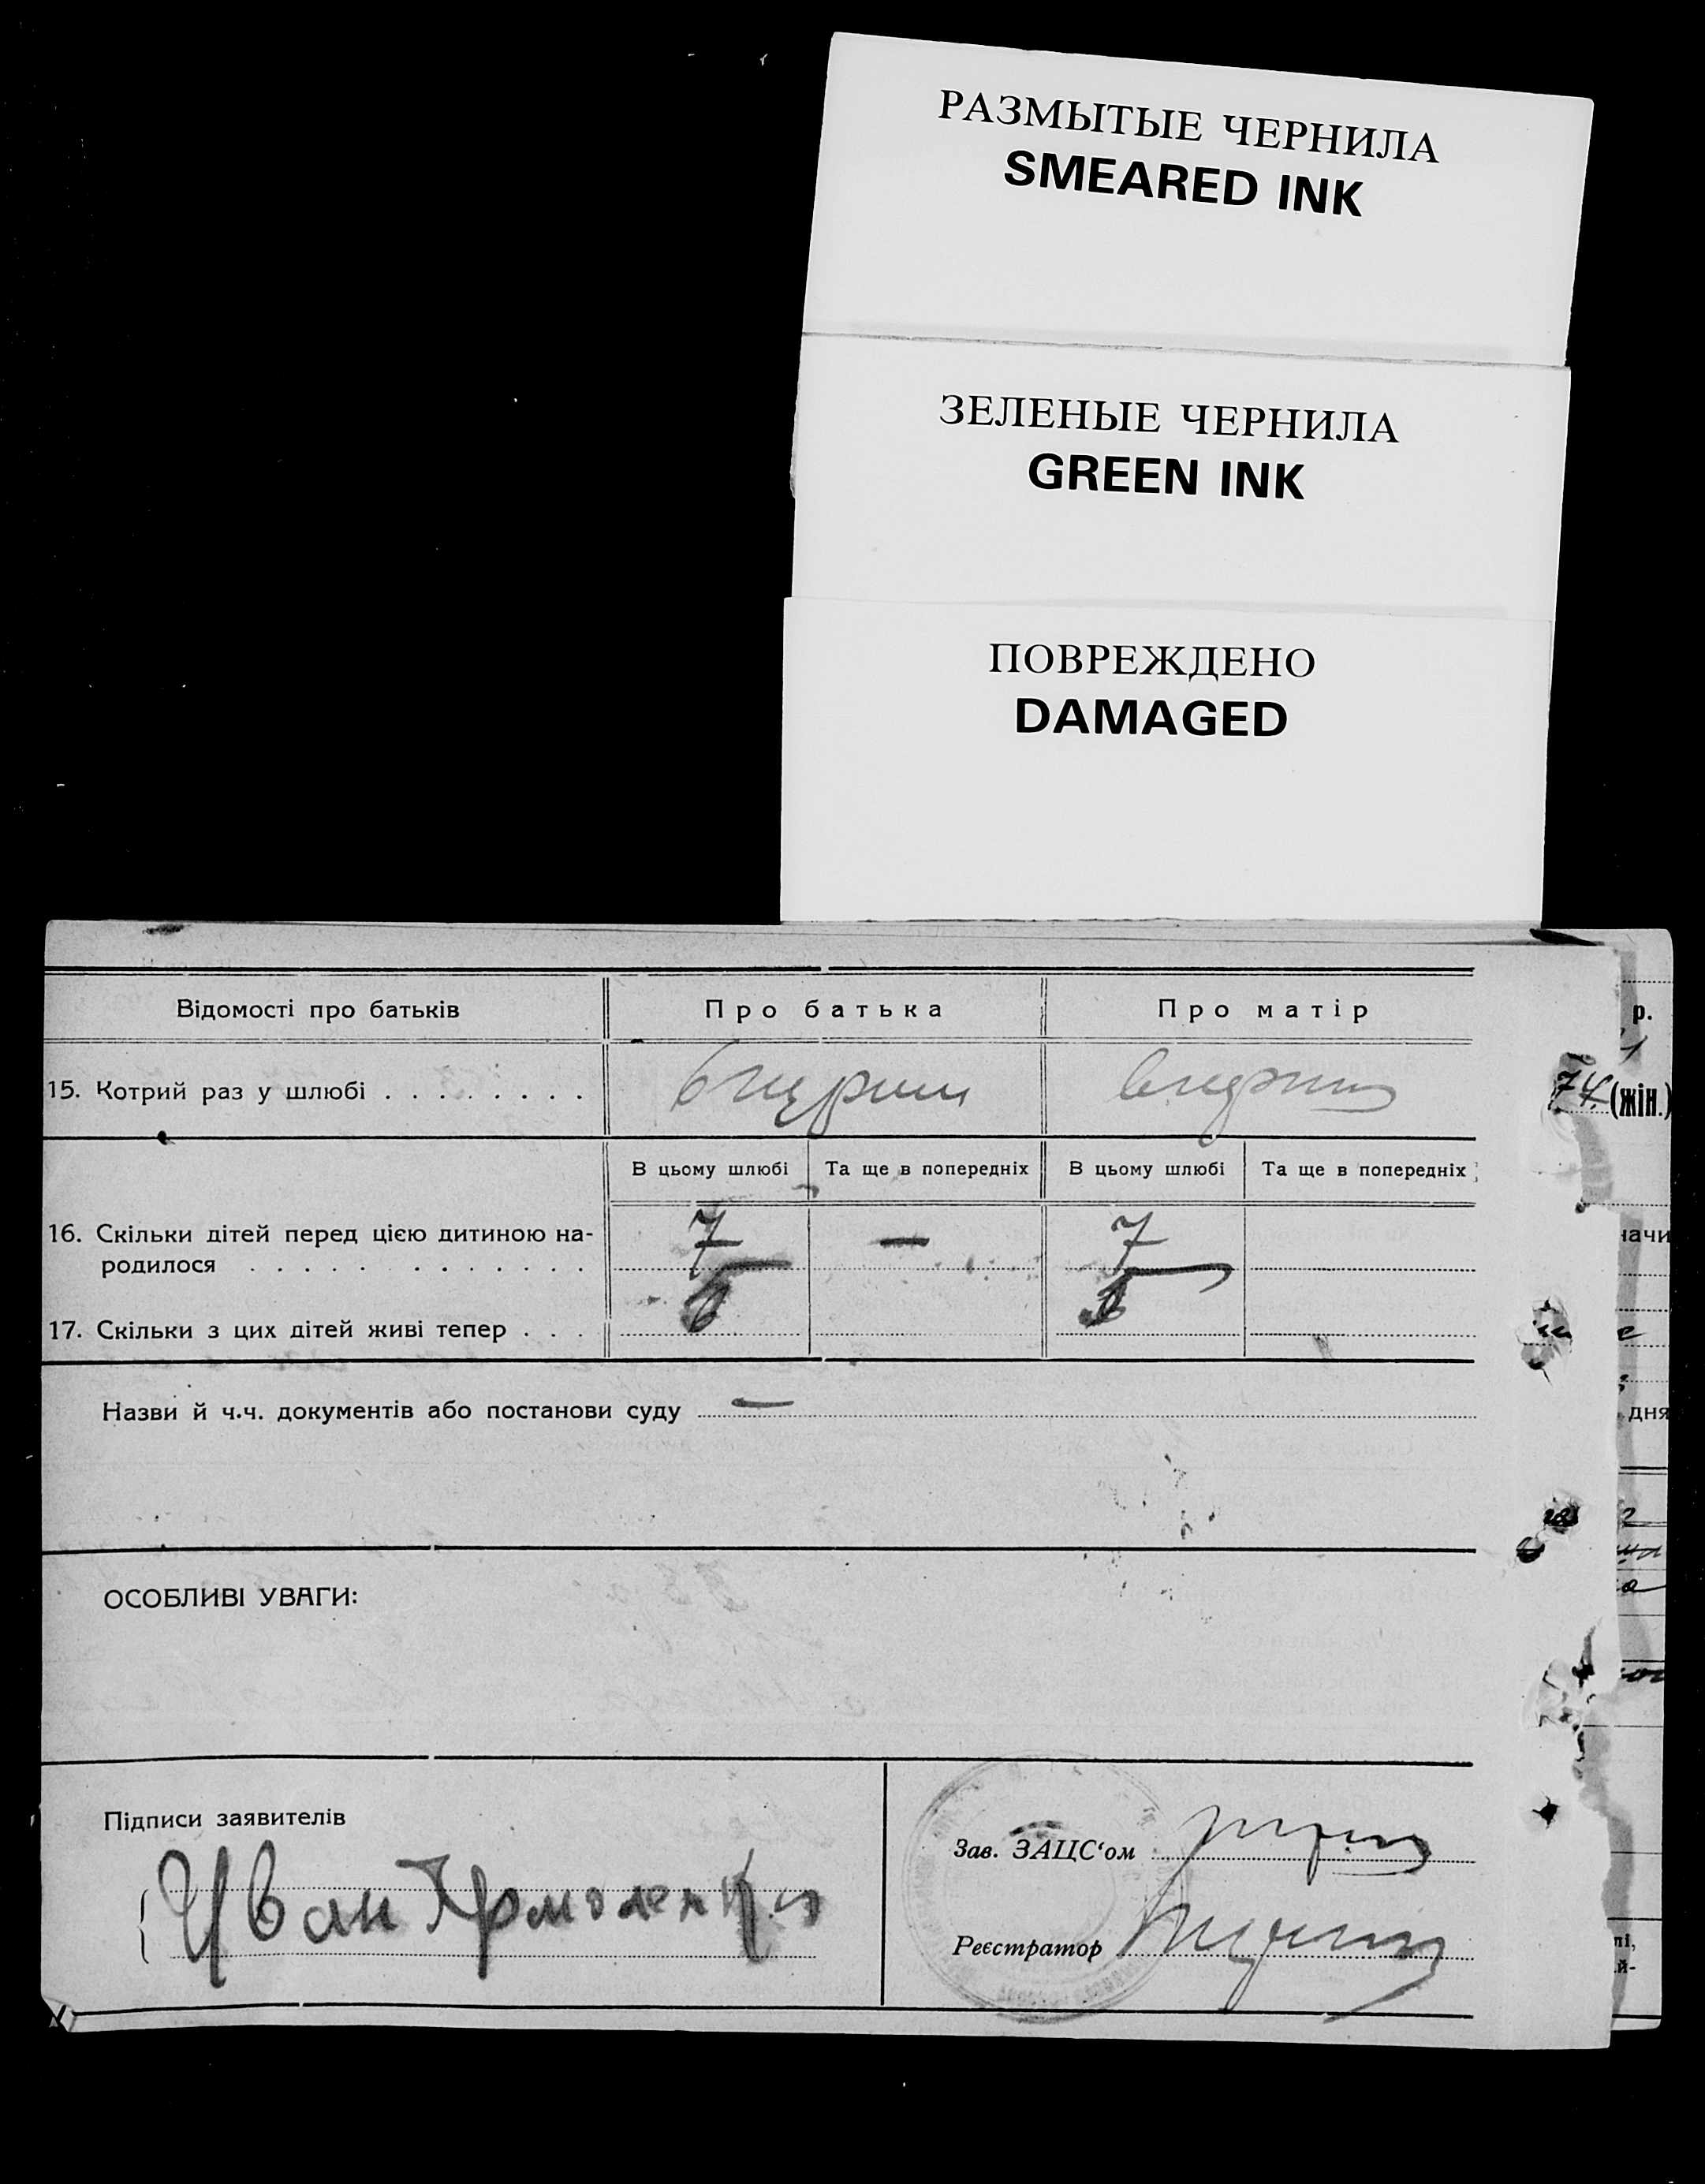 РАЗМЫТЫЕ ЧЕРНИЛА
SMEARED INK
ЗЕЛЕНЫЕ ЧЕРНИЛА
GREEN INK
ПОВРЕЖДЕНО
DAMAGED
Відомості про батьків
Про батька
Про матір
15. Котрий раз у шлюбі
В цьому шлюбі
Та ще в попередніх
В цьому шлюбі
Та ще в попередніх
16. Скільки дітей перед цією дитиною на-
родилося
7 — 7
17. Скільки з цих дітей живі тепер
Назви й ч.ч. документів або постанови суду —
ОСОБЛИВІ УВАГИ:
Підписи заявителів
Иван
Зав. ЗАЦС‘ом
Реєстратор
р.
74 (жін.)
дня